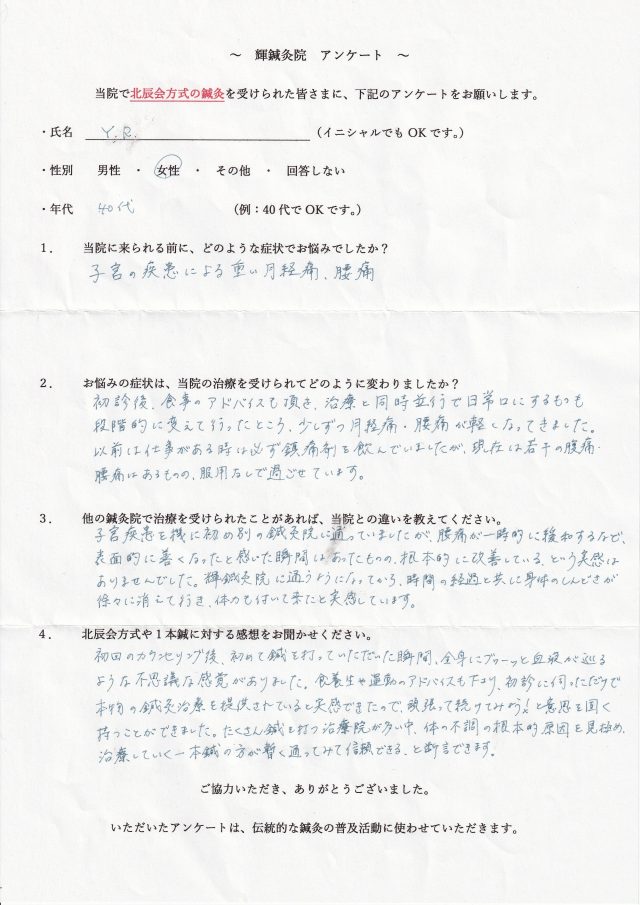 ～ 輝鍼灸院 アンケート ～
当院で北辰会方式の鍼灸を受けられた皆さまに、下記のアンケートをお願いします。
・氏名 Y.R. （イニシャルでもOKです。）
・性別 男性 ・ 女性 ・ その他 ・ 回答しない
・年代 40代 （例：40代でOKです。）
1． 当院に来られる前に、どのような症状でお悩みでしたか？
子宮の疾患による重い月経痛、腰痛
2． お悩みの症状は、当院の治療を受けられてどのように変わりましたか？
初診後、食事のアドバイスも頂き、治療と同時並行で日常口にするものも
段階的に変えて行ったところ、少しずつ月経痛・腰痛が軽くなってきました。
以前は仕事がある時は必ず鎮痛剤を飲んでいましたが、現在は若干の腹痛・
腰痛はあるものの、服用なしで過ごせています。
3． 他の鍼灸院で治療を受けられたことがあれば、当院との違いを教えてください。
子宮疾患を機に初め別の鍼灸院に通っていましたが、腰痛が一時的に緩和するなど、
表面的に善くなったと感いた瞬間はあったものの、根本的に改善している、という実感は
ありませんでした。輝鍼灸院に通うようになってから、時間の経過と共に身体のしんどさが
徐々に消えて行き、体力も付いて来たと実感しています。
4． 北辰会方式や1本鍼に対する感想をお聞かせください。
初回のカウンセリング後、初めて鍼を打っていただいた瞬間、全身にブワーッと血液が巡る
ような不思議な感覚がありました。食養生や運動のアドバイスも下さり、初診に伺っただけで
本物の鍼灸治療を提供されていると実感できたので、頑張って続けてみよう！と意思を固く
持つことができました。たくさん鍼を打つ治療院が多い中、体の不調の根本的原因を見極め、
治療していく一本鍼の方が暫く通ってみて信頼できる、と断言できます。
ご協力いただき、ありがとうございました。
いただいたアンケートは、伝統的な鍼灸の普及活動に使わせていただきます。